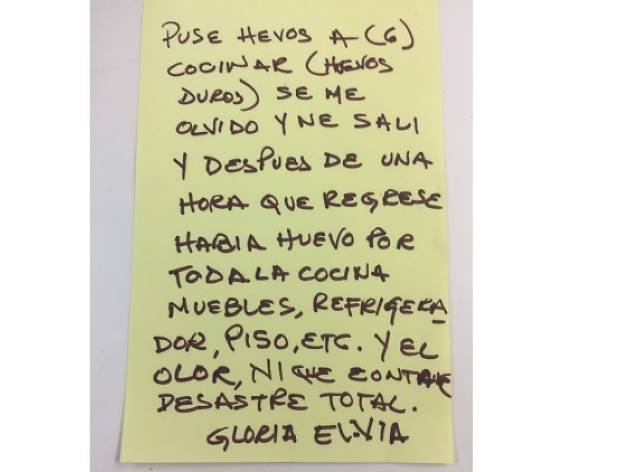 PUSE HEVOS A (6)
COCINAR (HUEVOS
DUROS) SE ME
OLVIDO Y ME SALI
Y DESPUES DE UNA
HORA QUE REGRESE
HABIA HUEVO POR
TODA LA COCINA
MUEBLES, REFRIGERA
DOR, PISO, ETC. Y EL
OLOR, NI QUE CONTAR
DESASTRE TOTAL.
GLORIA ELVIA